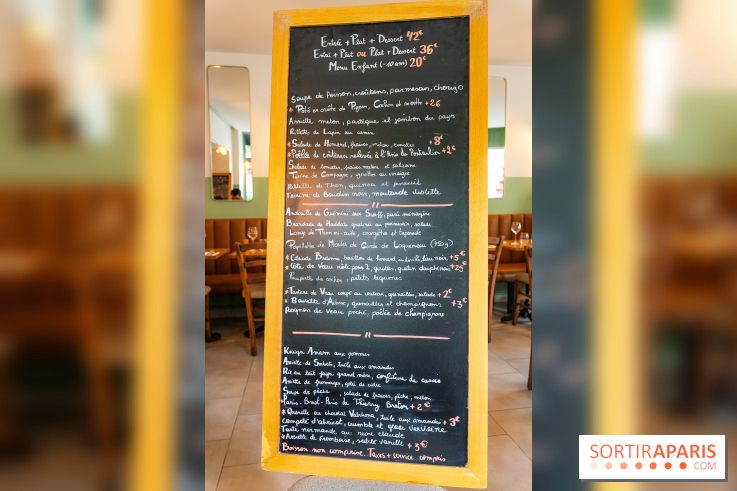 Entrée + Plat + Dessert 42€
Entrée + Plat ou Plat + Dessert 36€
Menu Enfant (-10 ans) 20€
Soupe de Poisson, croûtons, parmesan, chorizo
* Pâté en croûte de Pigeon, Cochon et +2€
Assiette melon, pastèque et jambon du pays
Rillettes de Lapin au
* Salade de Homard, fraises, melon, tomates +8€
* Poêlée de couteaux relevée à l'Anis de Pontarlier +2€
Salade de tomates, fraises, melon et
Terrine de Campagne, au vinaigre
Rillette de Thon, quinoa et
Terrine de Boudin noir, moutarde violette
Andouille de Guémené sur purée ménagère
Brandade de Haddock gratinée au parmesan, salade
Longe de Thon mi-cuite, courgettes et tapenade
Moules de Corde de (750g)
* Bretonne, bouillon de homard, +5€
* Côte de Veau rôtie pour 2, gratin dauphinois +25€
Paupiette de cochon, petits légumes
* Tartare de Veau coupé au couteau, grenailles, salade +2€
* Bavette d'Aloyau, grenailles et champignons +3€
Rognon de Veau poché, poêlée de champignons
Kouign Amann aux pommes
Assiette de Sorbets, tuile aux amandes
Riz au lait façon grand mère, confiture de cassis
Assiette de fromages, gelée de cidre
Soupe de pêche, salade de fraises, pêche, melon
* Paris-Brest-Paris de Thierry Breton +2€
* Quenelle au chocolat Valrhona, tuile aux amandes +3€
Compote d'abricot, crumble et glace verveine
Tarte normande aux reine claude
* Assiette de framboise, sablé vanille +5€
Boisson non comprise. Taxes + service compris
SORTIRAPARIS
.COM